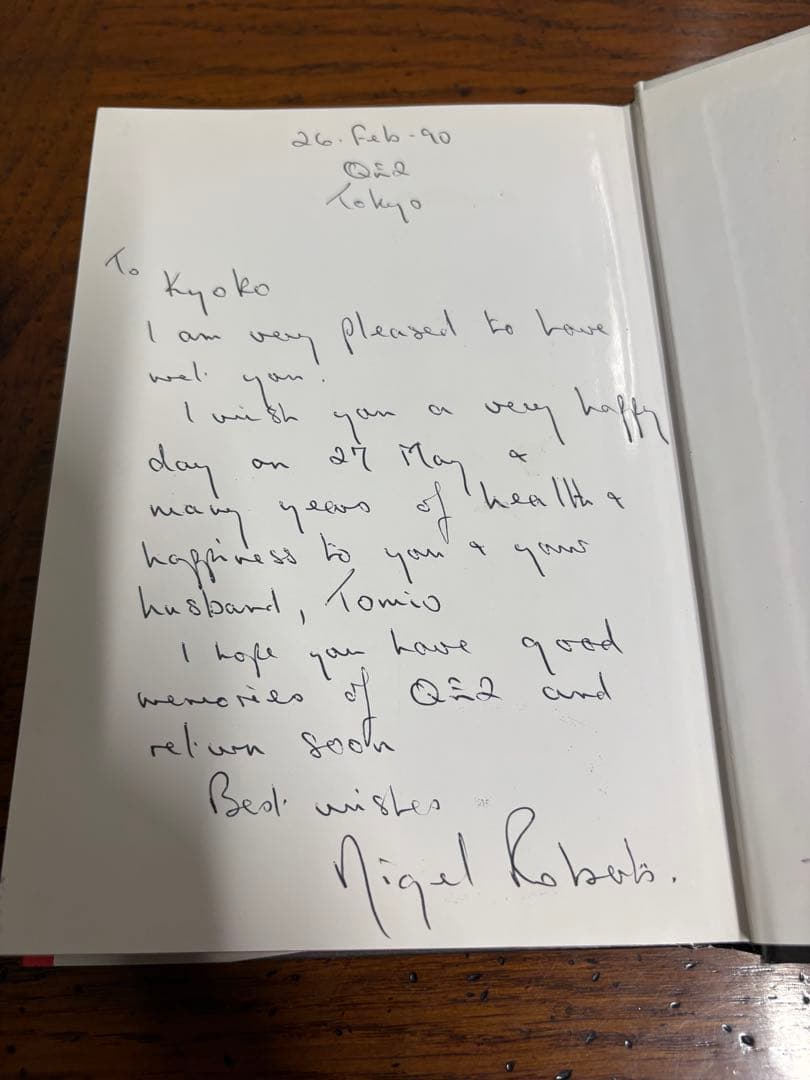 26. Feb - 90
QE2
Tokyo
To Kyoko
I am very pleased to have
met you.
I wish you a very happy
day on 27 May &
many years of health &
happiness to you & your
husband, Tomio
I hope you have good
memories of QE2 and
return soon
Best wishes
Nigel Roberts.